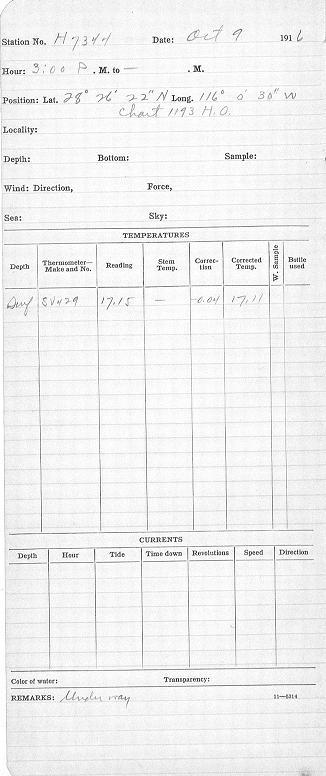 Station No. H7344 Date: Oct 9 1916
Hour: 3:00 P. M. to — . M.
Position: Lat. 28° 26' 22" N Long. 116° 0' 30" W
Chart 1193 H.O.
Locality:
Depth: Bottom: Sample:
Wind: Direction, Force,
Sea: Sky:
TEMPERATURES
Depth Thermometer—Make and No. Reading Stem Temp. Correction Corrected Temp. W. Sample Bottle used
Surf SV429 17.15 — -0.04 17.11
CURRENTS
Depth Hour Tide Time down Revolutions Speed Direction
Color of water: Transparency:
REMARKS: Under way 11—5314